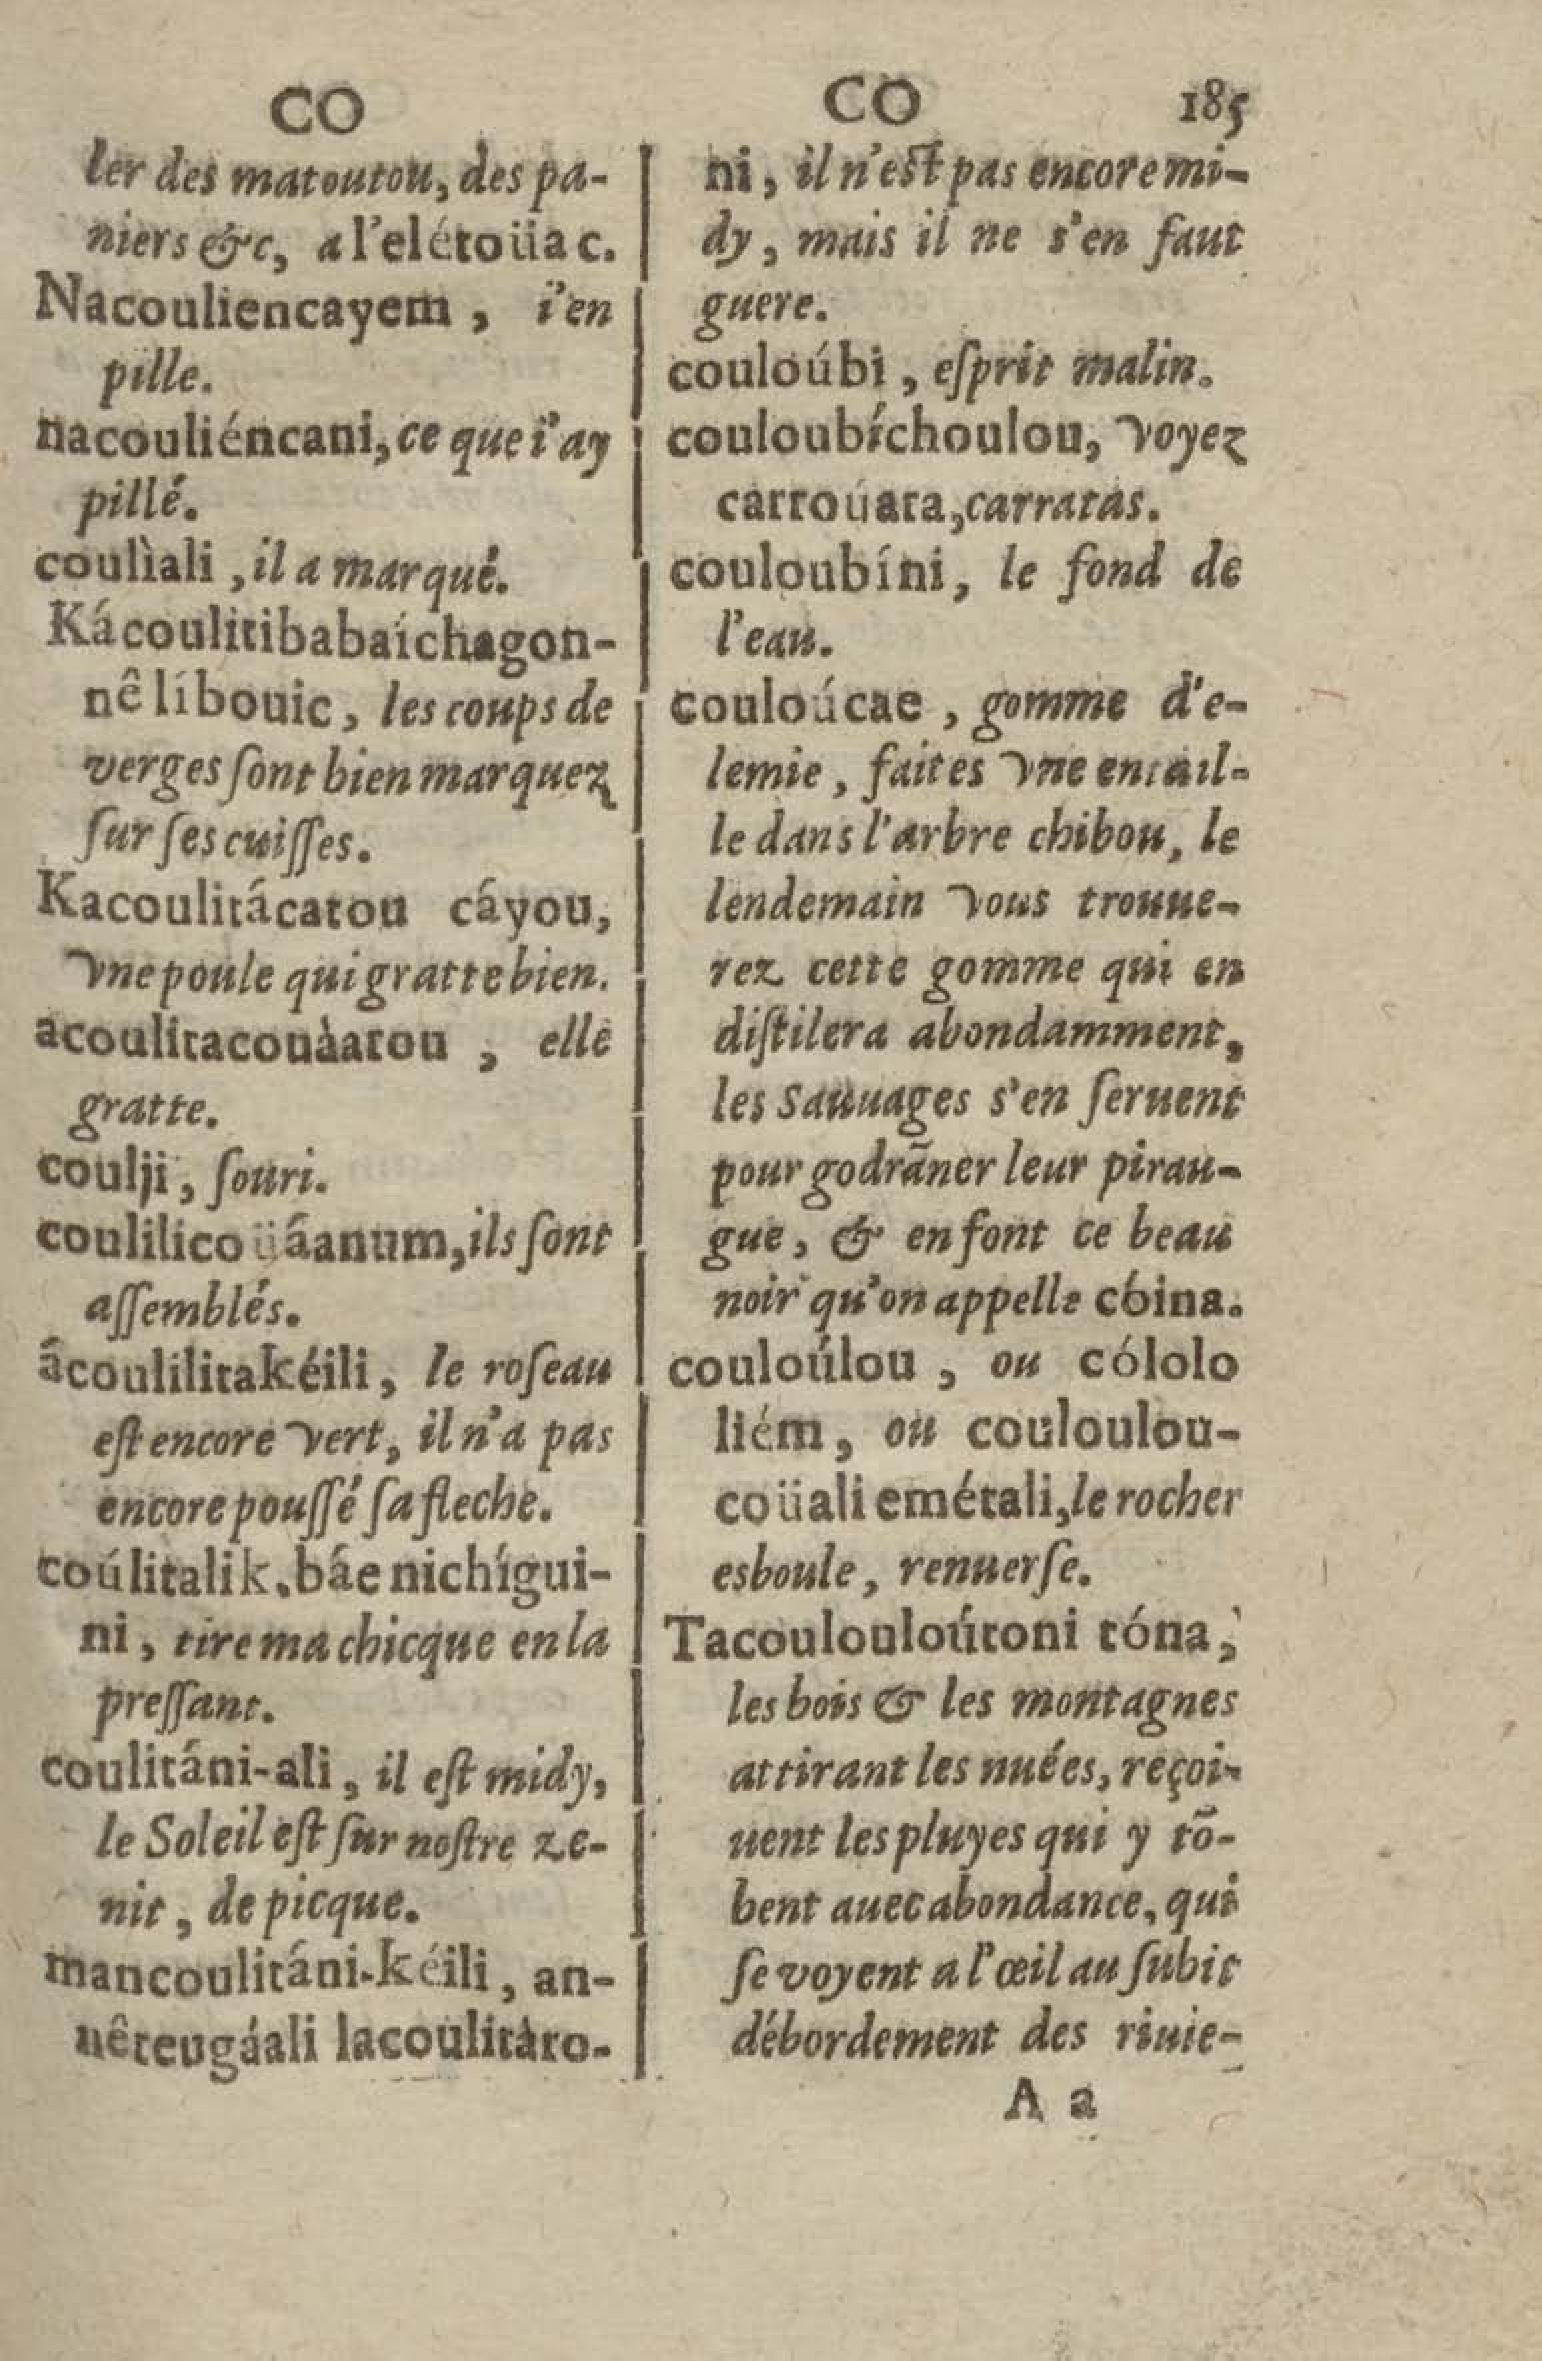 CO
ler des matoutou, des pa-
niers &c, a l'elétoüac.
Nacouliencayem, i'en
pille.
nacouliéncani, ce que i'ay
pillé.
coulìali, il a marqué.
Kácoulitibabaíchagon-
nê líbouic, les coups de
verges ſont bien marquez
ſur ſes cuiſſes.
Kacoulitácatou cáyou,
vne poule qui gratte bien.
acoulitacouàatou, elle
gratte.
coulji, ſouri.
coulilicoüáanum, ils ſont
aſſemblés.
ácoulilitakéili, le roſeau
eſt encore vert, il n'a pas
encore pouſſé ſa fleche.
coúlitalik, báe nichígui-
ni, tire ma chicque en la
preſſant.
coulitáni-ali, il eſt midy,
le Soleil eſt ſur noſtre ze-
nit, de picque.
mancoulitáni-kéili, an-
nêteugáali lacoulitàto-
CO 185
ni, il n'eſt pas encore mi-
dy, mais il ne s'en faut
guere.
couloúbi, eſprit malin.
couloubíchoulou, voyez
carroúata, carratas.
couloubíni, le fond de
l'eau.
couloúcae, gomme d'e-
lemie, faites vne entail-
le dans l'arbre chibou, le
lendemain vous trouue-
rez cette gomme qui en
diſtilera abondamment,
les Sauuages s'en ſeruent
pour godrãner leur pirau-
gue, & en font ce beau
noir qu'on appelle cóina.
couloúlou, ou cólolo
liém, ou couloulou-
coüali emétali, le rocher
esboule, renuerſe.
Tacouloulouútoni tóna,
les bois & les montagnes
attirant les nuées, reçoi-
uent les pluyes qui y tõ-
bent auec abondance, qui
ſe voyent a l'œil au ſubit
débordement des riuie-
A a